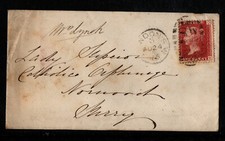 Mrs Lynch
Lady Superior
Catholic Orphanage
Norwood
Surry